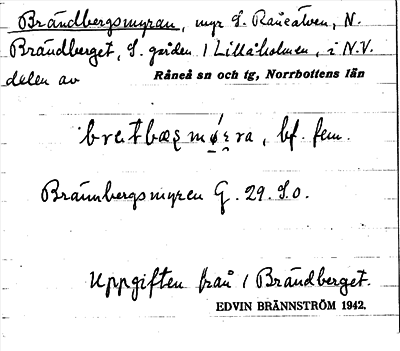 Brändbergsmyran, myr S. Råneälven, N.
Brändberget, S. gården 1 Lillåholmen, i N.V.
delen av Råneå sn och tg, Norrbottens län
bf. fem.
Brännbergsmyren G. 29. S.O.
Uppgiften från 1 Brändberget.
EDVIN BRÄNNSTRÖM 1942.